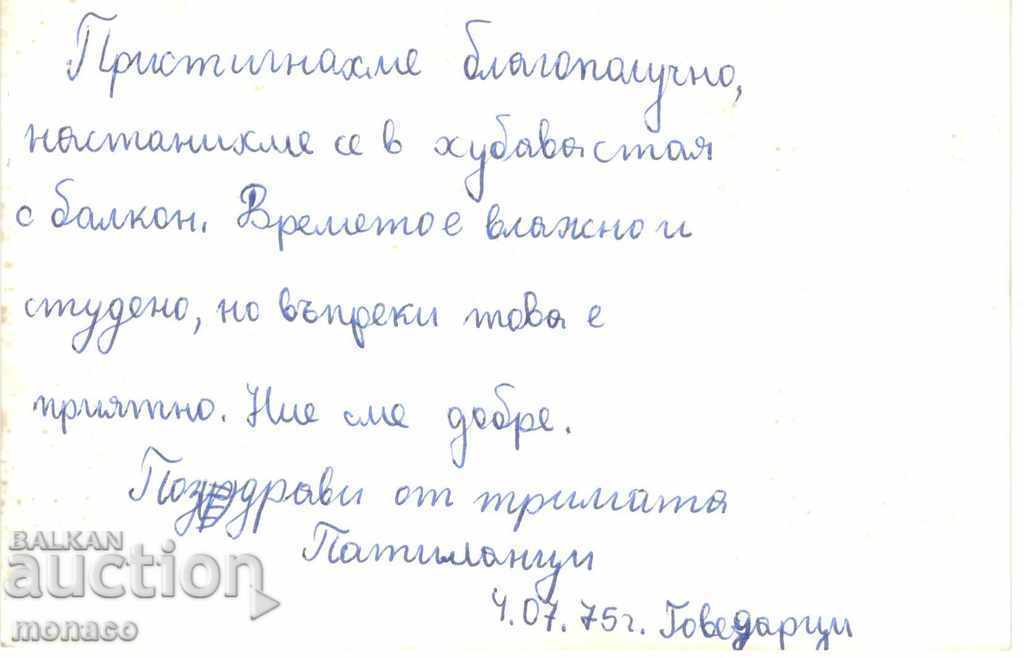 Пристигнахме благополучно,
настанихме се в хубава стая
с балкон. Времето е влажно и
студено, но въпреки това е
приятно. Ние сме добре.
Поздрави от тримата
Патиланци
4.07.75г. Говедарци
BALKAN
auction
monaco